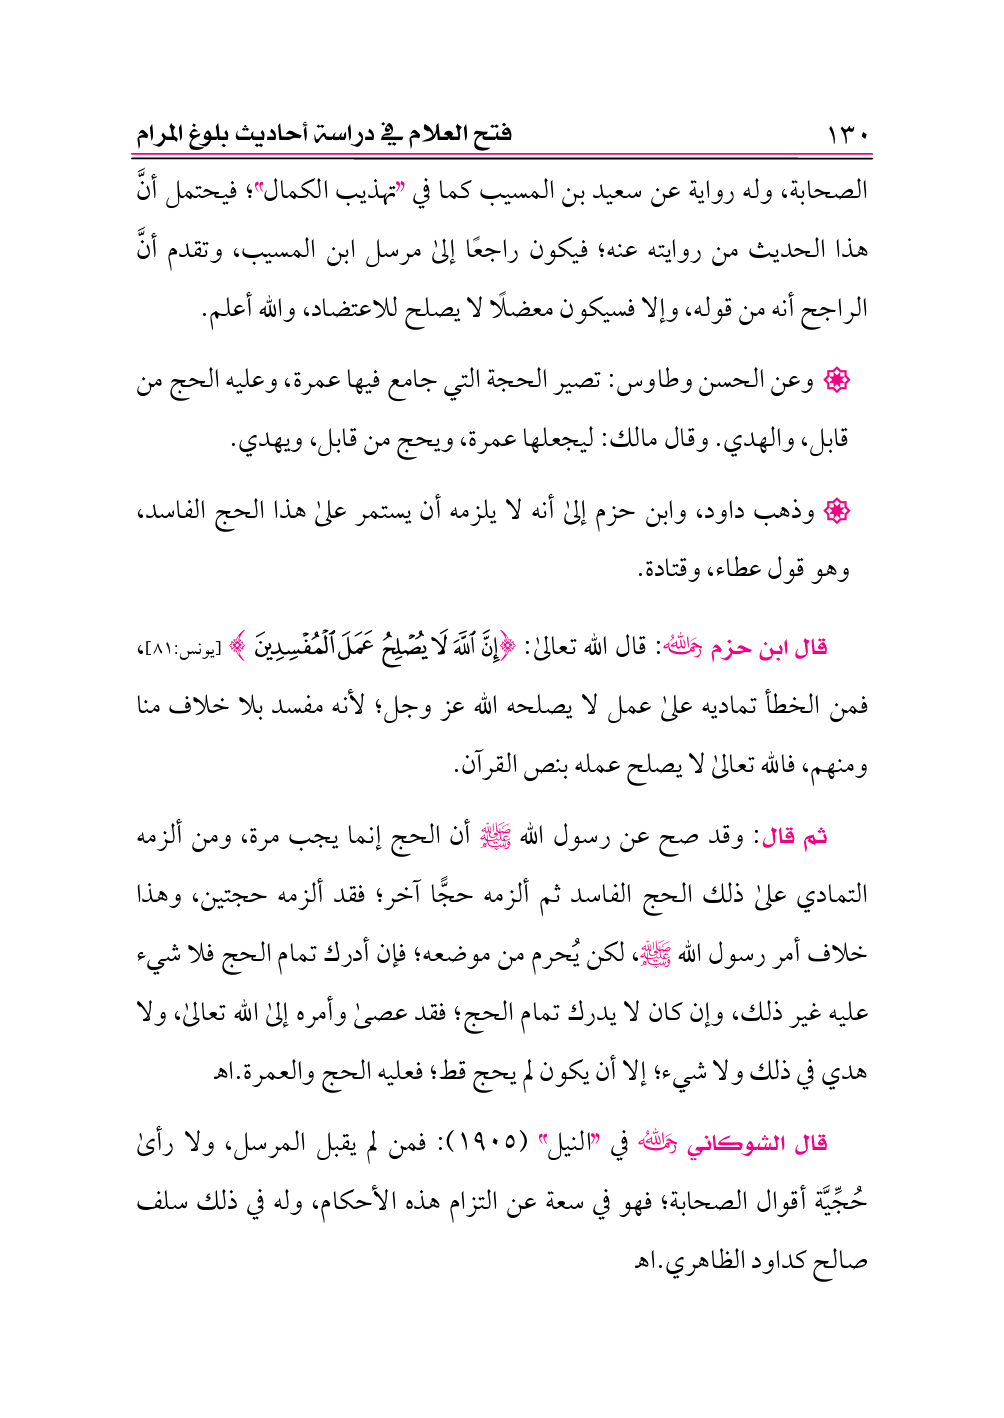 ١٣٠ فتح العلام في دراسة أحاديث بلوغ المرام
الصحابة، وله رواية عن سعيد بن المسيب كما في "تهذيب الكمال"؛ فيحتمل أنَّ
هذا الحديث من روايته عنه؛ فيكون راجعًا إلىٰ مرسل ابن المسيب، وتقدم أنَّ
الراجح أنه من قوله، وإلا فسيكون معضلًا لا يصلح للاعتضاد، والله أعلم.
۞ وعن الحسن وطاوس: تصير الحجة التي جامع فيها عمرة، وعليه الحج من
قابل، والهدي. وقال مالك: ليجعلها عمرة، ويحج من قابل، ويهدي.
۞ وذهب داود، وابن حزم إلىٰ أنه لا يلزمه أن يستمر علىٰ هذا الحج الفاسد،
وهو قول عطاء، وقتادة.
قال ابن حزم رحمه الله: قال الله تعالىٰ: ﴿إِنَّ ٱللَّهَ لَا يُصْلِحُ عَمَلَ ٱلْمُفْسِدِينَ﴾ [يونس:٨١]،
فمن الخطأ تماديه علىٰ عمل لا يصلحه الله عز وجل؛ لأنه مفسد بلا خلاف منا
ومنهم، فالله تعالىٰ لا يصلح عمله بنص القرآن.
ثم قال: وقد صح عن رسول الله ﷺ أن الحج إنما يجب مرة، ومن ألزمه
التمادي علىٰ ذلك الحج الفاسد ثم ألزمه حجًّا آخر؛ فقد ألزمه حجتين، وهذا
خلاف أمر رسول الله ﷺ، لكن يُحرم من موضعه؛ فإن أدرك تمام الحج فلا شيء
عليه غير ذلك، وإن كان لا يدرك تمام الحج؛ فقد عصىٰ وأمره إلىٰ الله تعالىٰ، ولا
هدي في ذلك ولا شيء؛ إلا أن يكون لم يحج قط؛ فعليه الحج والعمرة.اهـ
قال الشوكاني رحمه الله في "النيل" (١٩٠٥): فمن لم يقبل المرسل، ولا رأىٰ
حُجِّيَّة أقوال الصحابة؛ فهو في سعة عن التزام هذه الأحكام، وله في ذلك سلف
صالح كداود الظاهري.اهـ